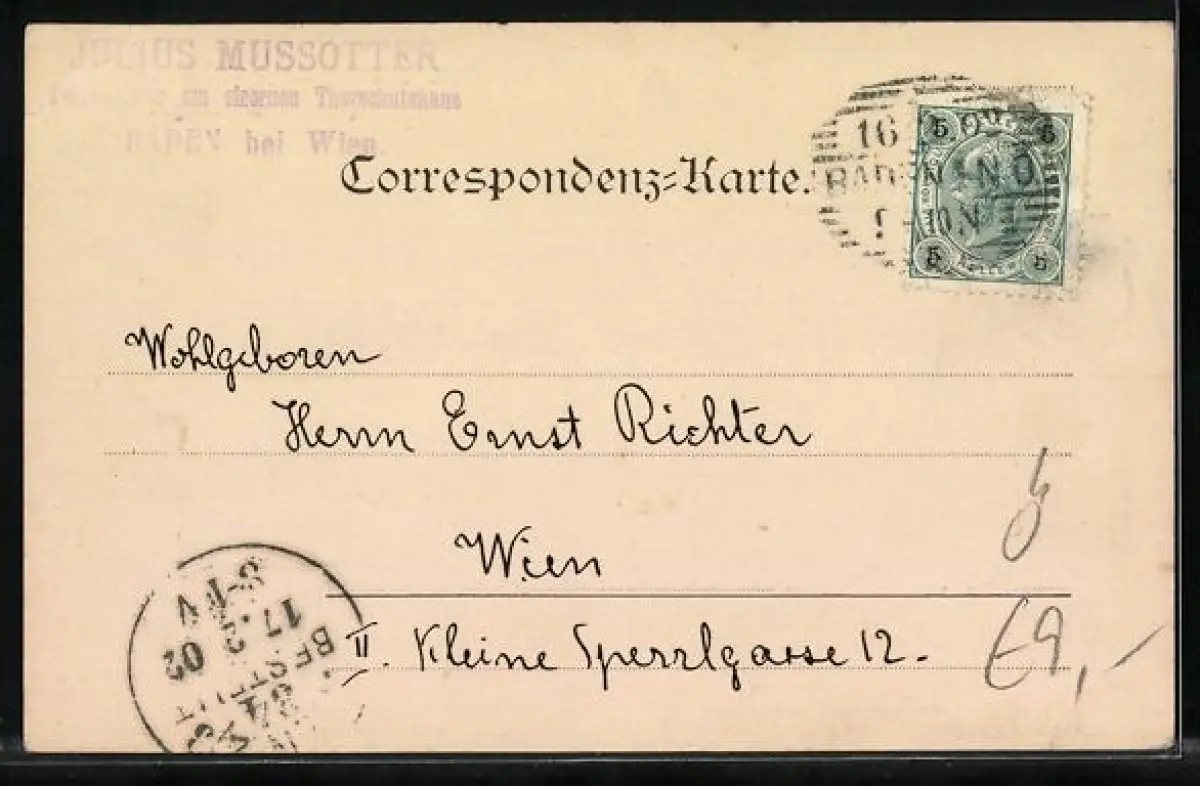 JULIUS MUSSOTTER
am eisernen Thorschutzhaus
BADEN bei Wien.
Correspondenz-Karte.
16
BADEN N.Ö
10 N
5 5
5 5
HELLER
Wohlgeboren
Herrn Ernst Richter
Wien
II. Kleine Sperrlgasse 12.
BESTELLT
17. 3. 02
€9,-